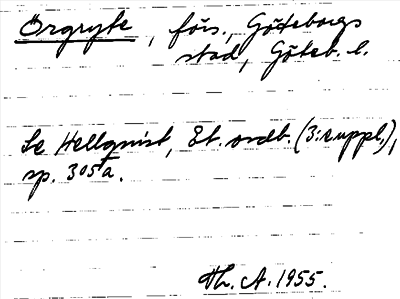 Örgryte, förs., Göteborgs
stad, Göteb. l.
Se Hellquist, Et. ordb. (3:e uppl.),
sp. 305 a.
Th. A. 1955.